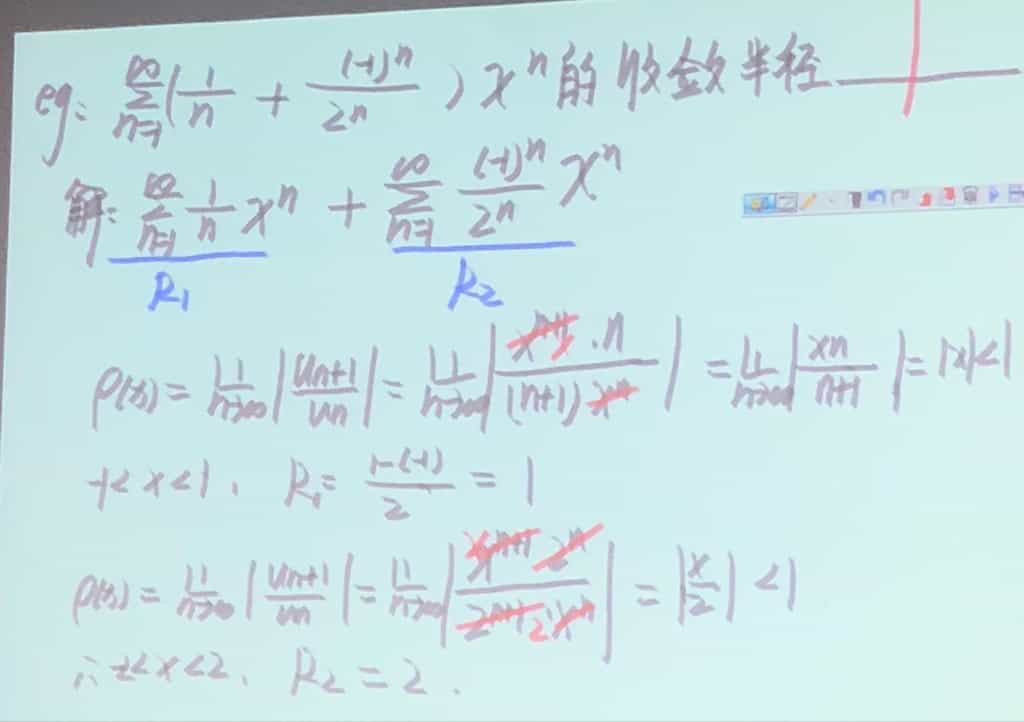 eg: ∞∑n=1 (1/n + (-1)^n/2^n) x^n 的收敛半径____
解: ∞∑n=1 1/n x^n + ∞∑n=1 (-1)^n/2^n x^n
R₁ R₂
ρ(x) = lim n→∞ |Un+1/Un| = lim n→∞ |x^(n+1) x · n/(n+1) x^n| = lim n→∞ |xn/n+1| = |x| < 1
-1 < x < 1, R₁ = 1-(-1)/2 = 1
ρ(x) = lim n→∞ |Un+1/Un| = lim n→∞ |x^(n+1) 2^n/2^(n+1) 2 x^n| = |x/2| < 1
∴ -2 < x < 2, R₂ = 2.